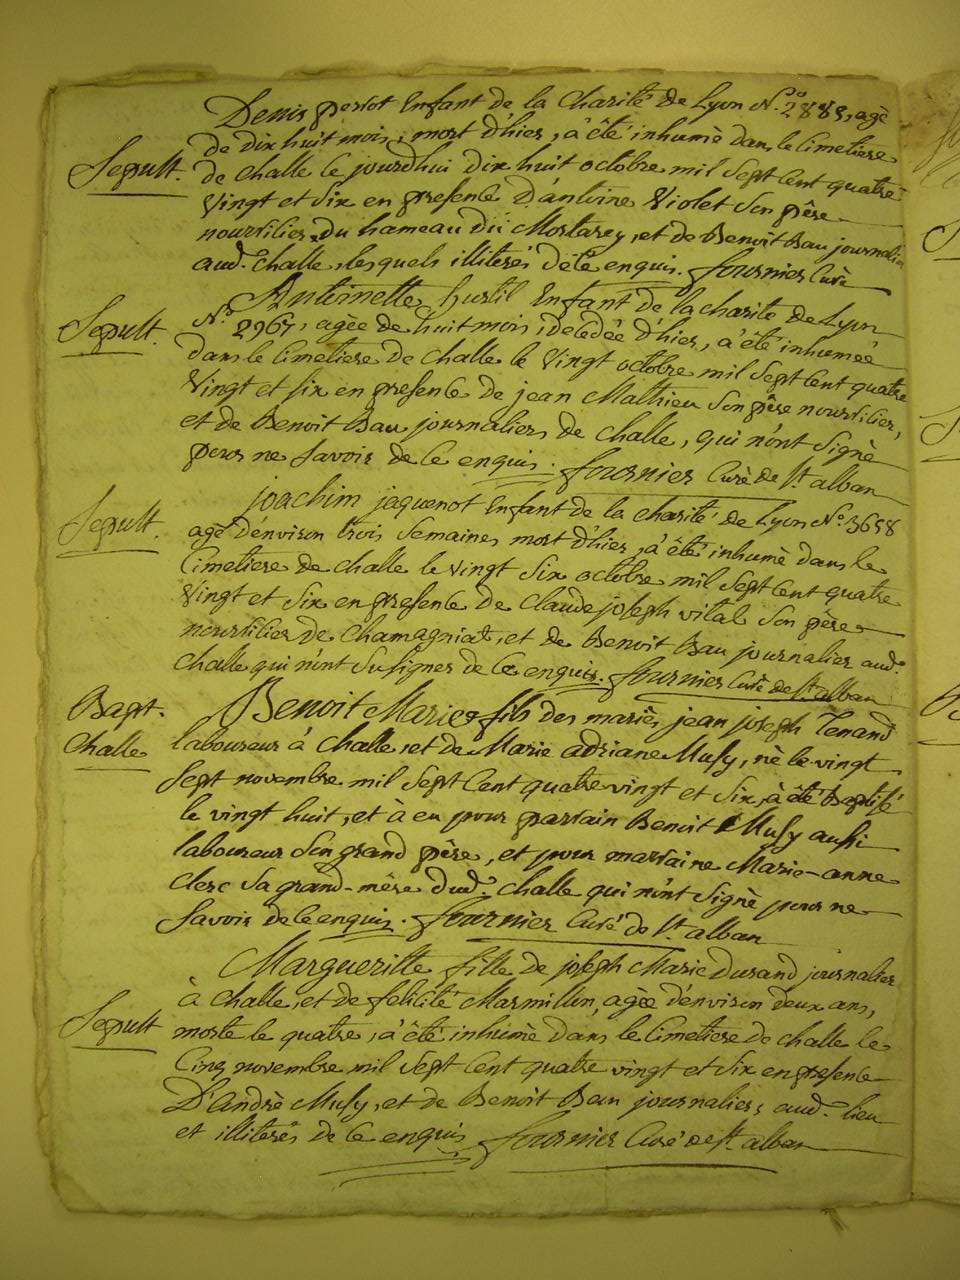 Denis perrot Enfant de la Charité de Lyon N.o 2885, agè
Sepult. de dix huit mois, mort d'hier, à été inhumè dans le Cimetiere
de Challe le jourdhui dix huit octobre mil Sept Cent quatre
Vingt et Six en presence D'antoine Violet Son père
nourricier du hameau du Mortarey, et de Benoit Bau journalier
aud. Challe, lesquels illiterés de Ce enquis. fournier Curè
Antoinette hustil Enfant de la charité de Lyon
Sepult. N.o 2967, agèe de huit mois, decedée d'hier, à été inhumeé
dans le Cimetiere de Challe le Vingt octobre mil Sept Cent quatre
Vingt et Six en presence de jean Mathieu Son père nourricier,
et de Benoit Bau journalier de Challe, qui n'ont Signè
pour ne Savoir de Ce enquis. fournier Curè de St. alban
joachim jaquenot Enfant de la charité de Lyon No. 3658
Sepult. agè d'environ trois Semaines mort d'hier, à été inhumè dans le
Cimetiere de Challe le vingt Six octobre mil Sept Cent quatre
Vingt et Six en presence de Claude joseph vital Son père
nourricier de Chamagniat, et de Benoit Bau journalier aud.
Challe qui n'ont Susignes de Ce enquis. fournier Curé de St. alban
Bapt. Benoit Marie fils des mariès jean joseph Tenand
Challe laboureur à Challe, et de Marie adriane Musy, nè le vingt
Sept novembre mil Sept Cent quatre vingt et Six, à été Baptisé
le vingt huit, et à eu pour parrain Benoit Musy aussi
laboureur Son grand père, et pour marraine Marie-anne
Clerc Sa grand-mère dud. Challe qui n'ont Signè pour ne
Savoir de Ce enquis. fournier Curé de St. alban
Margueritte fille de joseph Marie durand journalier
à Challe, et de felicité Marmillin, agèe d'environ deux ans,
Sepult morte le quatre, à été inhumée dans le Cimetiere de Challe le
Cinq novembre mil Sept Cent quatre vingt et Six en presence
D'Andrè Musy, et de Benoit Bau journaliers aud. lieu
et illiterés de Ce enquis fournier Curé de St. alban